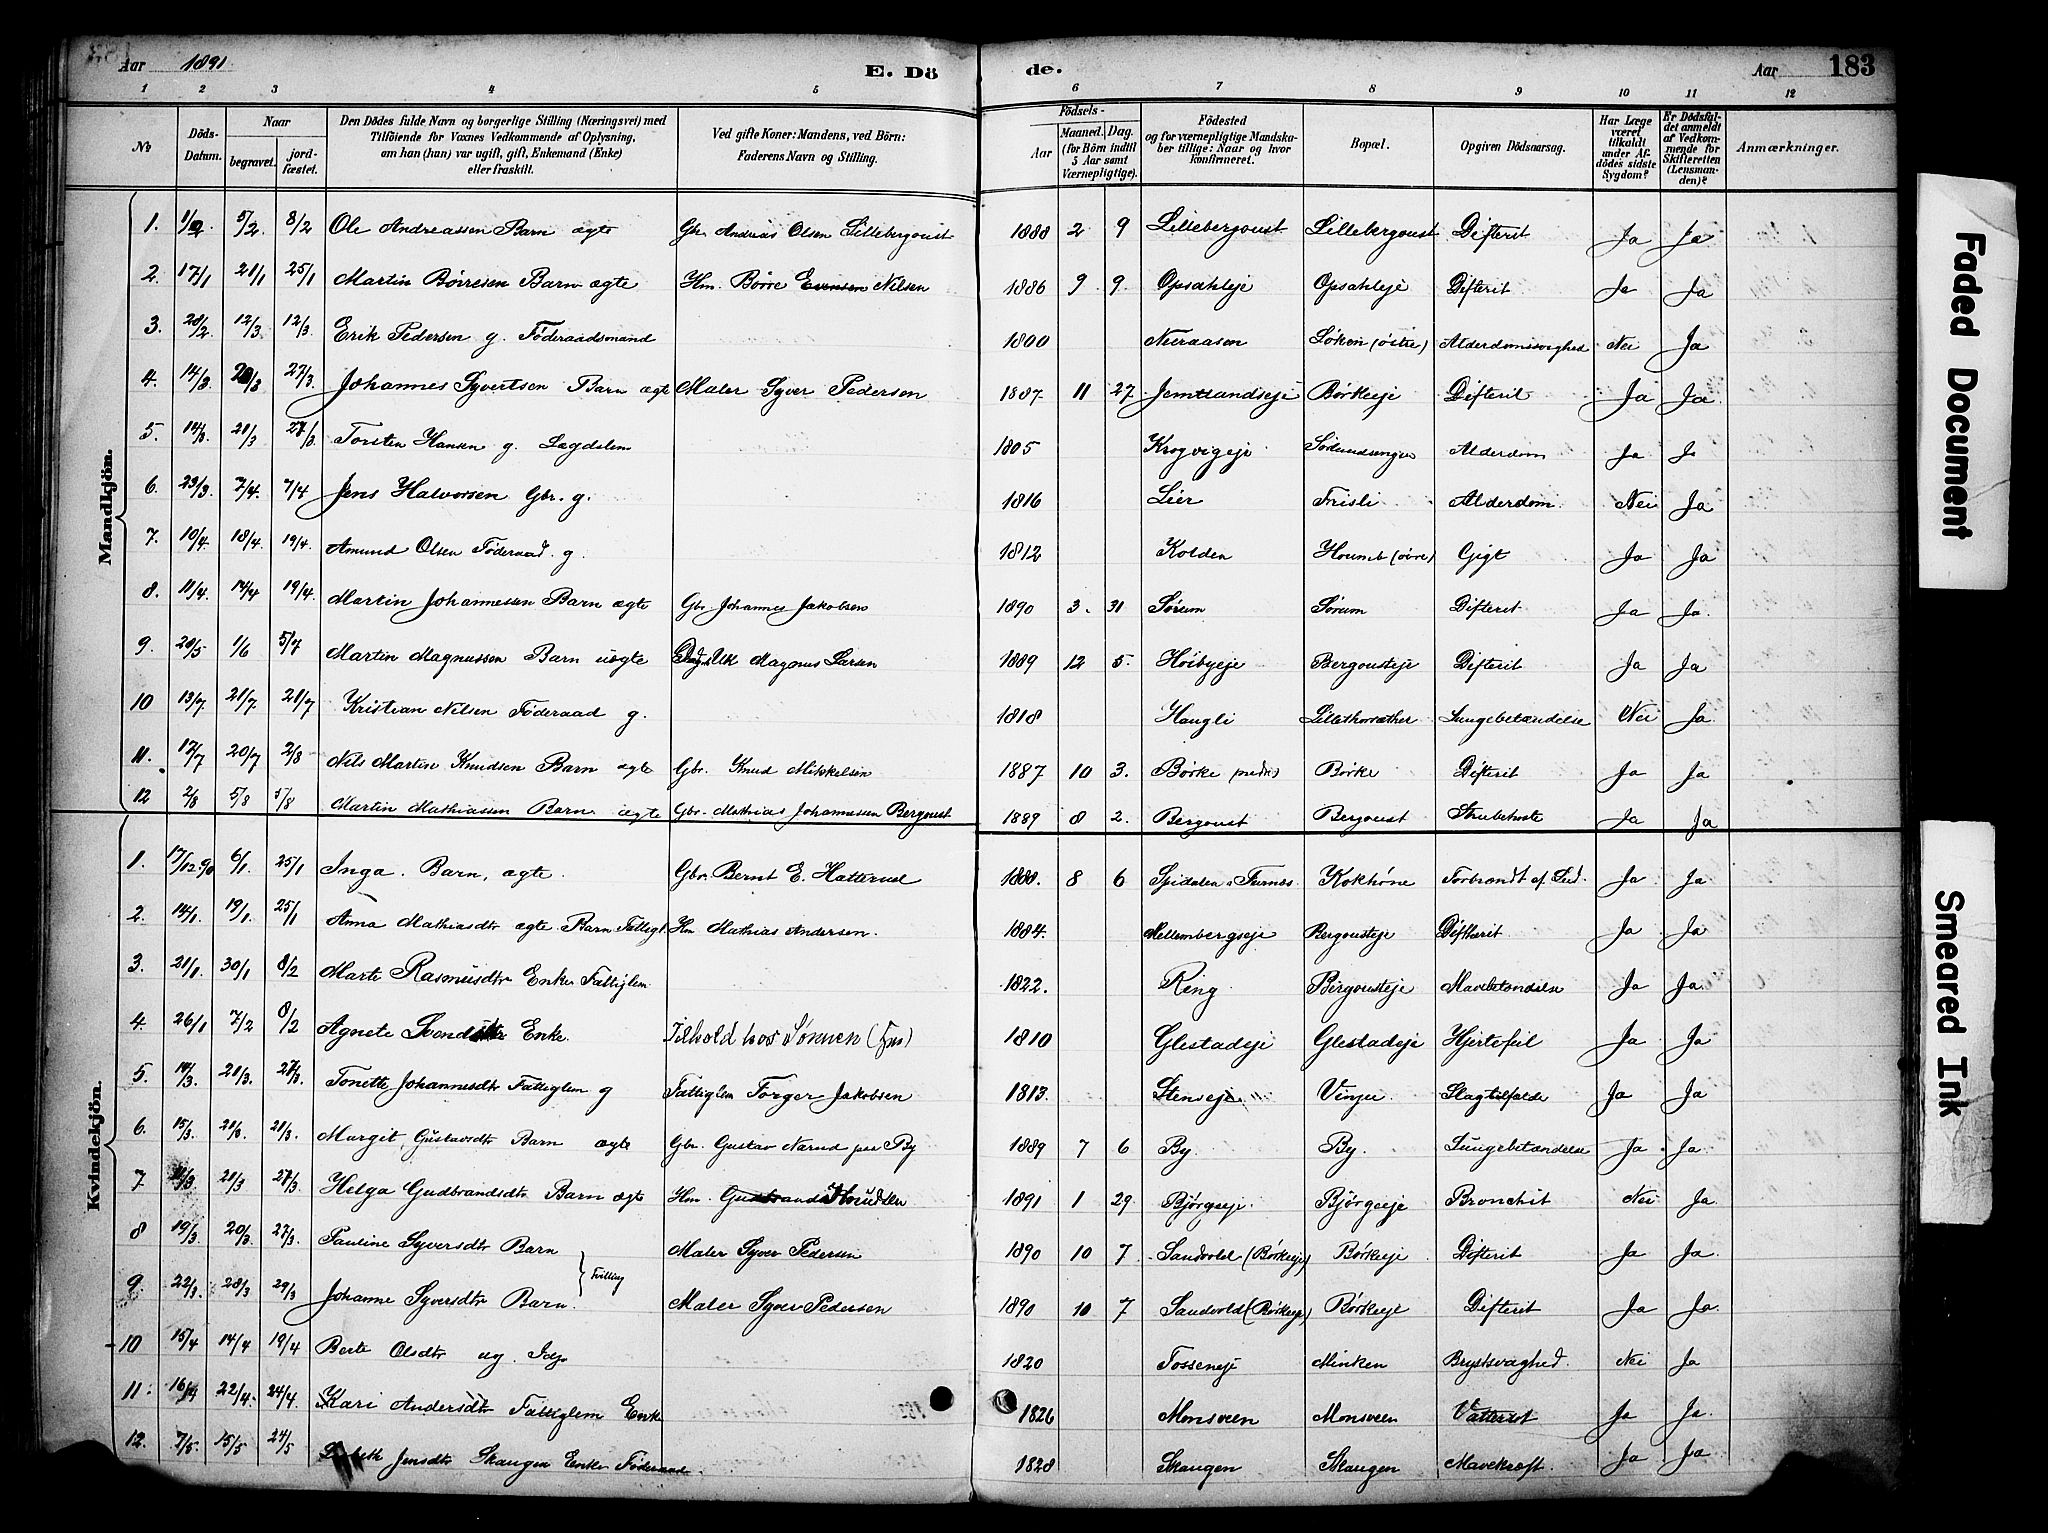 Aar 1891. E. Döde. Aar 183
1 2 3 4 5 6 7 8 9 10 11 12
No
Döds-Datum.
Naar
begravet.
jordfæstet.
Den Dödes fulde Navn og borgerlige Stilling (Næringsvei) med
Tilföiende for Voxnes Vedkommende af Oplysning,
om han (hun) var ugift, gift, Enkemand (Enke)
eller fraskilt.
Ved gifte Koner: Mandens, ved Börn:
Faderens Navn og Stilling.
Födsels-
Aar
Maaned. Dag.
(for Börn indtil
5 Aar samt
Værnepligtige).
Födested
og for værnepligtige Mandska-
ber tillige: Naar og hvor
konfirmeret.
Bopæl.
Opgiven Dödsaarsag.
Har Læge
været
tilkaldt
under Af-
dödes sidste
Sygdom?
Er Dödsfal-
det anmeldt
af Vedkom-
mende for
Skifteretten
(Lensman-
den)?
Anmærkninger.
Mandkjön.
1. 1/2. 5/2. 8/2 Ole Andreassen Barn ægte Gbr. Andreas Olsen Lillebergoust 1888 2 9 Lillebergoust Lillebergoust Difterit Ja Ja
2. 17/1 21/1 25/1 Martin Börresen Barn ægte Hm. Börre Nilsen 1886 9 9. Opsahleje Opsahleje Difterit Ja Ja
3. 28/2 12/3 12/3 Erik Pedersen g. Föderaadsmand 1800 Neuraasen Löken (östre) Alderdomssvaghed Nei Ja
4. 14/3 20/3 27/3. Johannes Syvertsen Barn ægte Maler Syver Pedersen 1887 11 27 Jemtlandseje Börkeeje Difterit Ja Ja
5. 14/3 21/3 27/3 Torsten Hansen g. Lægdslem 1805 Krogvigeje Alderdom Ja Ja
6. 23/3. 7/4. 7/4 Jens Halvorsen Gbr. g. 1816 Lier Frisli Alderdom Nei Ja
7. 10/4. 18/4. 19/4. Amund Olsen Föderaad. g. 1812 Kolden Houmb (övre) Gigt Ja Ja
8. 11/4. 14/4 19/4. Martin Johannessen Barn ægte Gbr. Johannes Jakobsen 1890 3. 31 Sörum Sörum Difterit Ja Ja.
9. 20/5 1/6 5/7 Martin Magnussen Barn uægte Magnus Larsen 1889 12 5. Höibyeje Bergousteje Difterit Ja Ja
10 13/7 21/7. 21/7 Kristian Nilsen Föderaad g. 1818 Haugli Lillethoræther Lungebetændelse Nei Ja
11. 17/7 20/7 2/8 Nils Martin Knudsen Barn ægte Gbr. Knud Mikkelsen 1887 10 3. Börke (nedre) Börke Difterit Ja Ja
12 2/8 5/8 5/8 Martin Mathiassen Barn ægte Gbr. Mathias Johannessen Bergoust 1889 8 2. Bergoust Bergoust Strubehoste Ja Ja
Kvindekjön.
1. 17/12.90 6/1 25/1 Inga. Barn, ægte. Gbr. Bernt E. Hatterud 1888. 8 6 Spidalen i Furnes Kokhöne Forbrændt af Ild. Ja Ja
2. 14/1. 19/1. 25/1 Anna Mathiasdtr ægte Barn Fattigl. Hm Mathias Andersen. 1884. Mellembergseje Bergousteje Difterit Ja. Ja
3. 21/1 30/1 8/2 Marte Rasmusdtr Enke Fattiglem 1822. Ring Bergousteje Mavebetændelse Ja Ja.
4. 26/1 7/2 8/2 Agnete Svendsdtr Enke. Tilhold hos Sönnen 1810 Glestadeje Glestadeje Hjertefeil Ja Ja
5. 14/3. 21/3. 27/3. Tonette Johannesdtr Fattiglem g Fattiglem Torger Jakobsen 1813. Stenseje Vinju Slagtilfælde Ja Ja
6. 15/3. 21/3. 21/3. Margit, Gustavsdtr Barn ægte Gbr. Gustav Narud paa By 1889 7 6 By By. Lungebetændelse Ja Ja
7 11/3 21/3 27/3. Helga Gudbrandsdtr Barn ægte Hm. Gudbrand Knudsen 1891 1 29. Björgeeje. Björgeeje Bronchit Nei Ja
8 19/3 20/3 27/3. Pauline Syversdtr Barn Maler Syver Pedersen 1890 10 7 Sandvold (Börkeeje) Börkeeje Difterit Ja Ja
Tvilling
9 22/3. 28/3 29/3 Johanne Syversdtr Barn. Maler Syver Pedersen 1890 10 7 Sandvold (Börkeeje) Börkeeje Difterit Ja Ja
10 15/4 14/4 19/4 Berte Olsdtr ug. Inds 1820 Fosseneje Minken Brystsvaghed. Nei Ja
11. 16/4 22/4. 24/4 Kari Andersdtr Fattiglem Enke 1826 Monsveen Monsveen Vattersot Ja Ja.
12. 7/5. 15/5 24/5 Jensdtr Skaugen Enke Föderaad. 1828 Skaugen Skaugen Mavekræft. Ja Ja
Faded Document
Smeared Ink